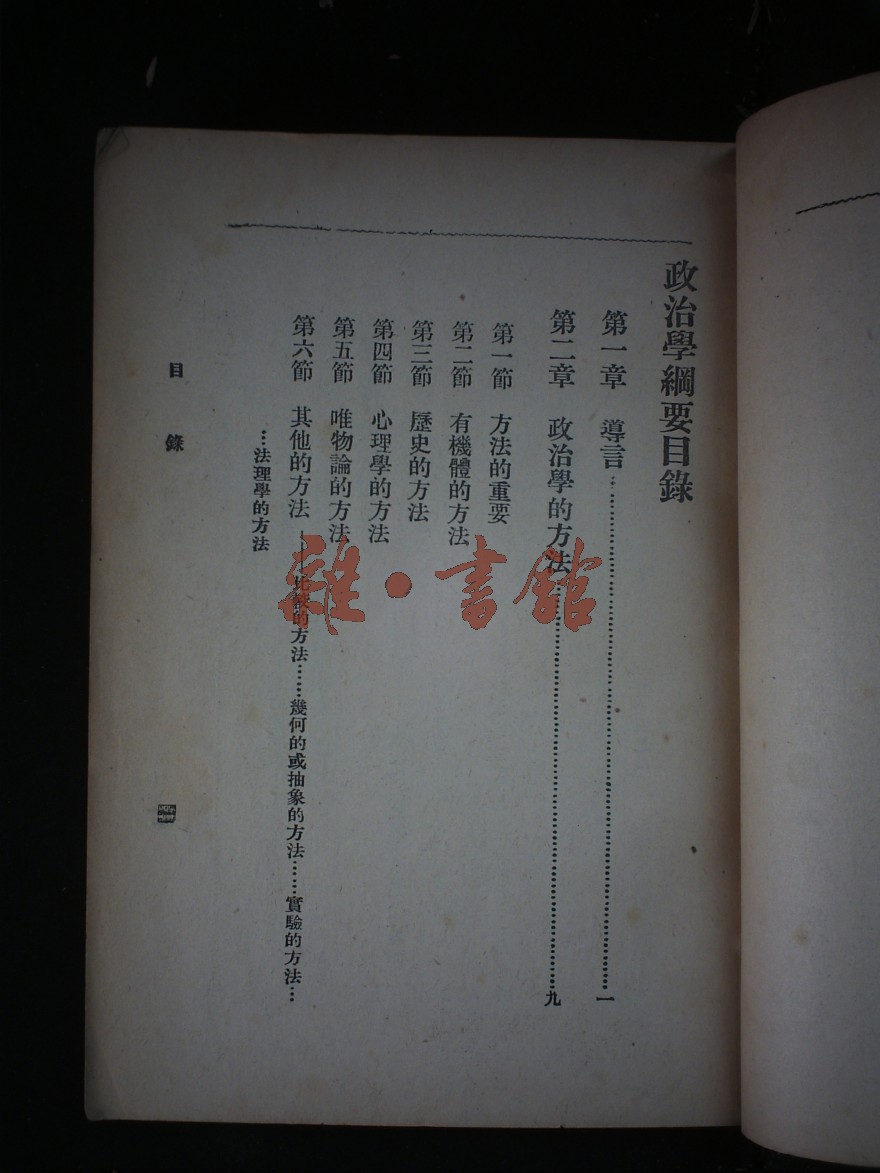 政治學綱要目錄
第一章 導言……一
第二章 政治學的方法……九
第一節 方法的重要
第二節 有機體的方法
第三節 歷史的方法
第四節 心理學的方法
第五節 唯物論的方法
第六節 其他的方法——比較的方法……幾何的或抽象的方法……實驗的方法…
…法理學的方法
目錄
雜·書館